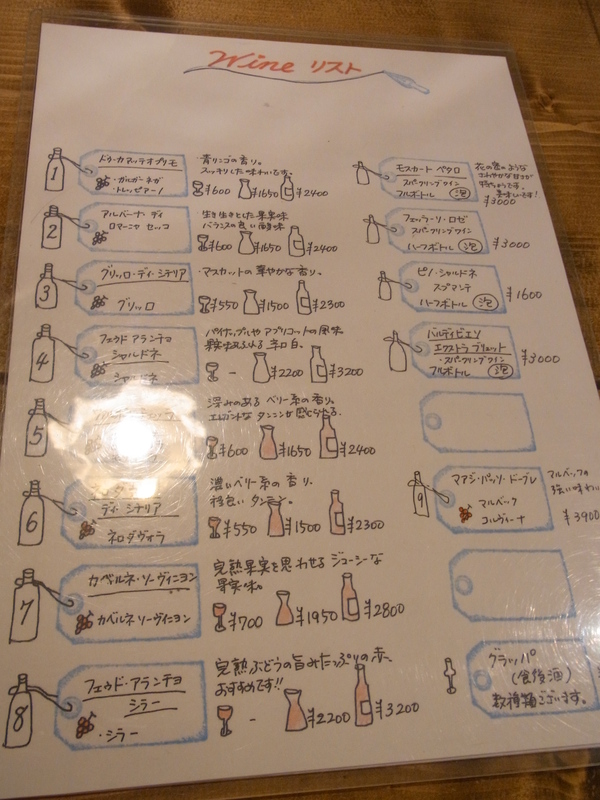 Wine リスト
1
ドゥーカ・マッテオ プリモ
・ガルガーネガ
・トレッビアーノ
・青リンゴの香り。
スッキリした味わいです。
¥600 ¥1650 ¥2400
2
アルバーナ・ディ
ロマーニャ セッコ
生き生きとした果実味
バランスの良い酸味
¥600 ¥1650 ¥2400
3
グリッロ・ディ・シチリア
グリッロ
・マスカットの華やかな香り。
¥550 ¥1500 ¥2300
4
フェウド アランチョ
シャルドネ
シャルドネ
パイナップルやアプリコットの風味
果実味あふれる辛口白。
- ¥2200 ¥3200
5
深みのある ベリー系の香り。
エレガントな タンニンが感じられる。
¥600 ¥1650 ¥2400
6
ディ・シチリア
ネロダヴォラ
濃いベリー系の香り。
程良いタンニン。
¥550 ¥1500 ¥2300
7
カベルネ・ソーヴィニヨン
カベルネ・ソーヴィニヨン
完熟果実を思わせる ジューシーな
果実味。
¥700 ¥1950 ¥2800
8
フェウド・アランチョ
シラー
・シラー
完熟ぶどうの旨みたっぷりの赤、
おすすめです!!
- ¥2200 ¥3200
モスカート ペタロ
スパークリングワイン
フルボトル 泡
花の蜜のような
さわやかな甘さが
特ちょうです。
美味しいです!
¥3000
フェッラーリ・ロゼ
スパークリングワイン
ハーフボトル 泡
¥3000
ピノ・シャルドネ
スプマンテ
ハーフボトル 泡
¥1600
バルディビエソ
エクストラ ブリュット
・スパークリングワイン
フルボトル 泡
¥3000
9
マアジ・パッソ・ドーブレ
マルベック
コルヴィーナ
マルベックの
強い味わい
¥3900
グラッパ
(食後酒)
数種類ございます。